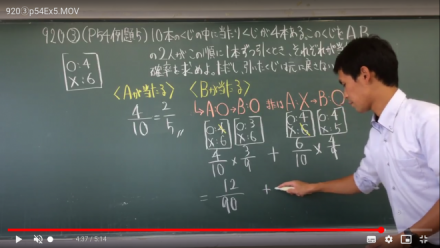 920③p54Ex5.MOV
920③(P54例題5)10本のくじの中に当たりくじが4本ある。このくじをA,B
の2人がこの順に1本ずつ引くとき、それぞれが当たる
確率を求めよ。ただし、引いたくじは元に戻さない
O:4
X:6
〈Aが当たる〉 〈Bが当たる〉
→A:O→B:O または A:X→B:O
4/10=2/5〃
O:4 X:6 O:3 X:6 O:4 X:6 O:4 X:5
4/10×3/9 + 6/10×4/9
=12/90 +
4:37 / 5:14